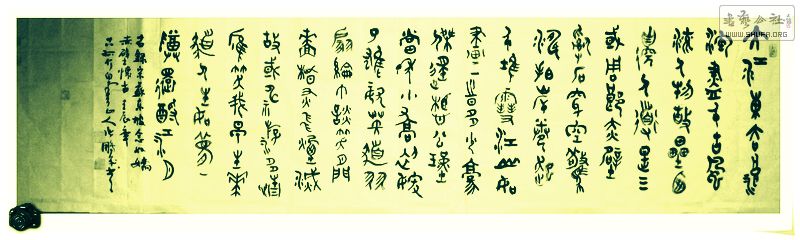 大江東去浪
淘盡千古風
流人物故壘西
邊人道是三
國周郎赤壁
亂石穿空驚
濤拍岸卷起
千堆雪江山如
畫一時多少豪
傑遙想公瑾
當年小喬初嫁
了雄姿英發羽
扇綸巾談笑間
檣櫓灰飛煙滅
故國神遊多情
應笑我早生華
髮人生如夢一
樽還酹江月
宋蘇東坡念奴嬌
赤壁懷古